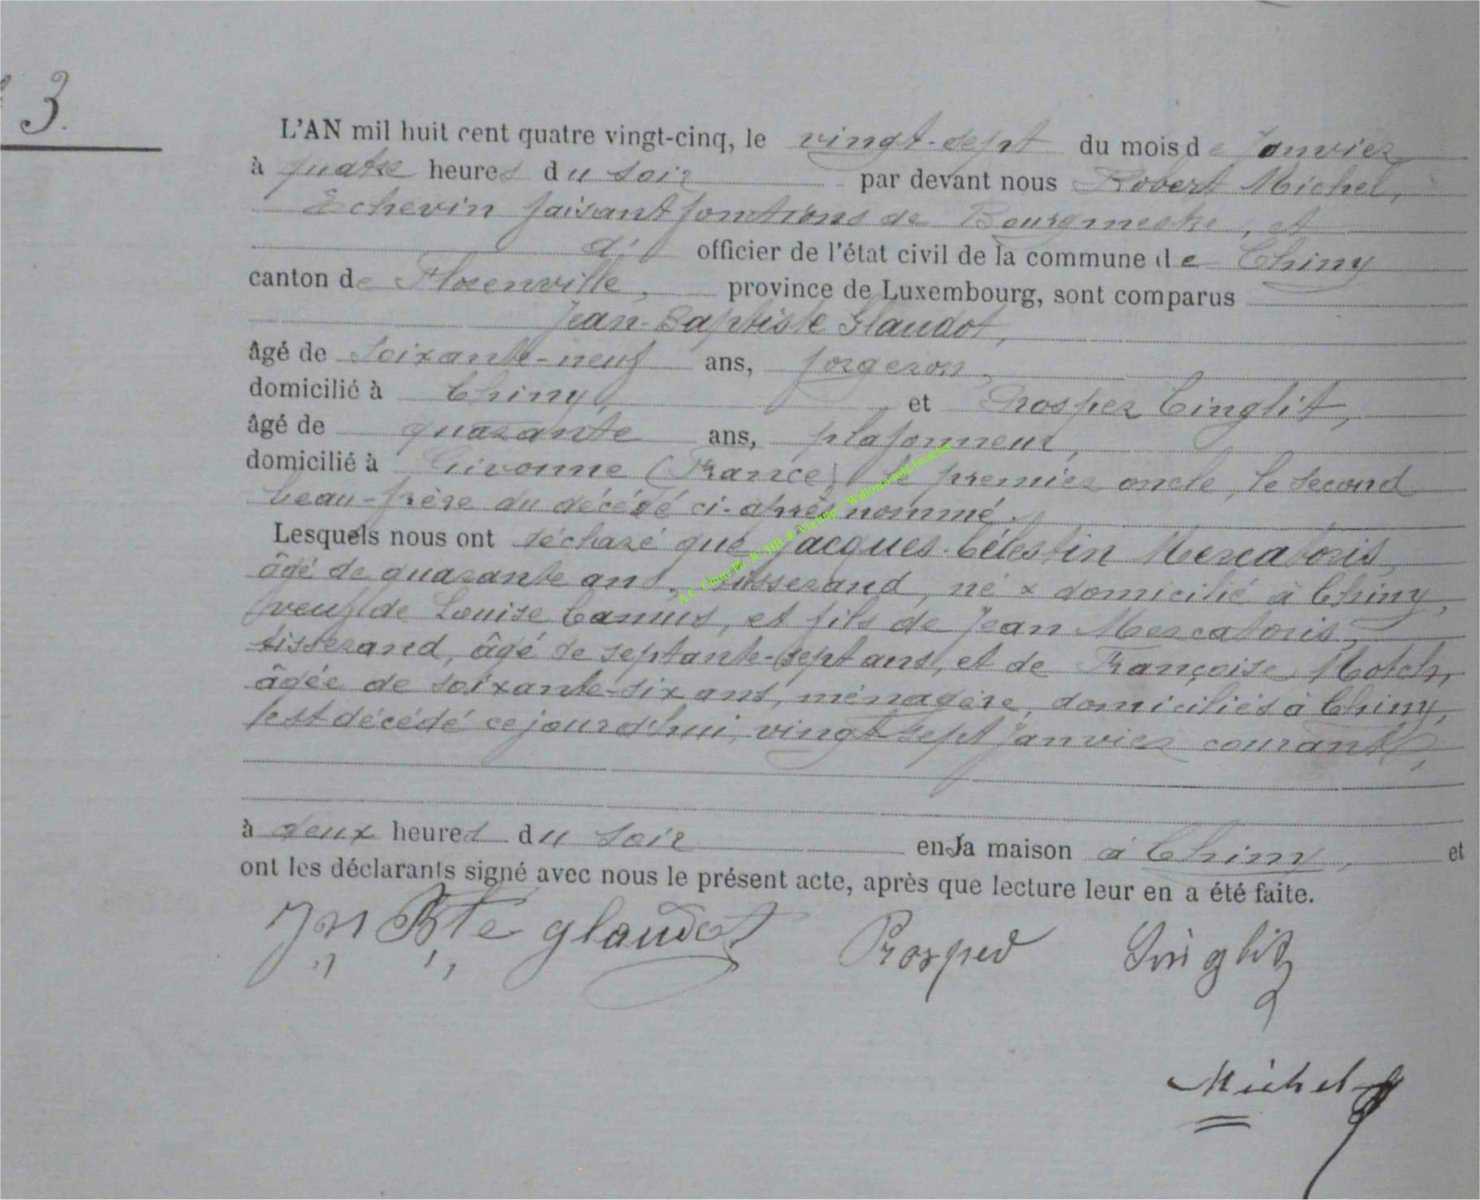 3.
L'AN mil huit cent quatre vingt-cinq, le vingt-sept du mois de Janvier
à quatre heures du soir par devant nous Robert Michel,
Echevin faisant fonctions de Bourgmestre, et
d' officier de l'état civil de la commune de Chiny
canton de Florenville, province de Luxembourg, sont comparus
Jean-Baptiste Glaudot,
âgé de soixante-neuf ans, forgeron,
domicilié à Chiny, et Prosper Cinglit,
âgé de quarante ans, plafonneur,
domicilié à Givonne (France) le premier oncle, le second
beau-frère du décédé ci-après nommé.
Lesquels nous ont déclaré que Jacques-Célestin Mercatoris,
âgé de quarante ans, tisserand, né & domicilié à Chiny,
veuf de Louise Camus, et fils de Jean Mercatoris,
tisserand, âgé de septante-sept ans, et de Françoise Motch,
âgée de soixante-six ans, ménagère, domiciliés à Chiny,
est décédé ce jourd'hui, vingt-sept Janvier courant,
à deux heures du soir en la maison à Chiny, et
ont les déclarants signé avec nous le présent acte, après que lecture leur en a été faite.
Jn Bte glaudot Prosper Singlit
Michel